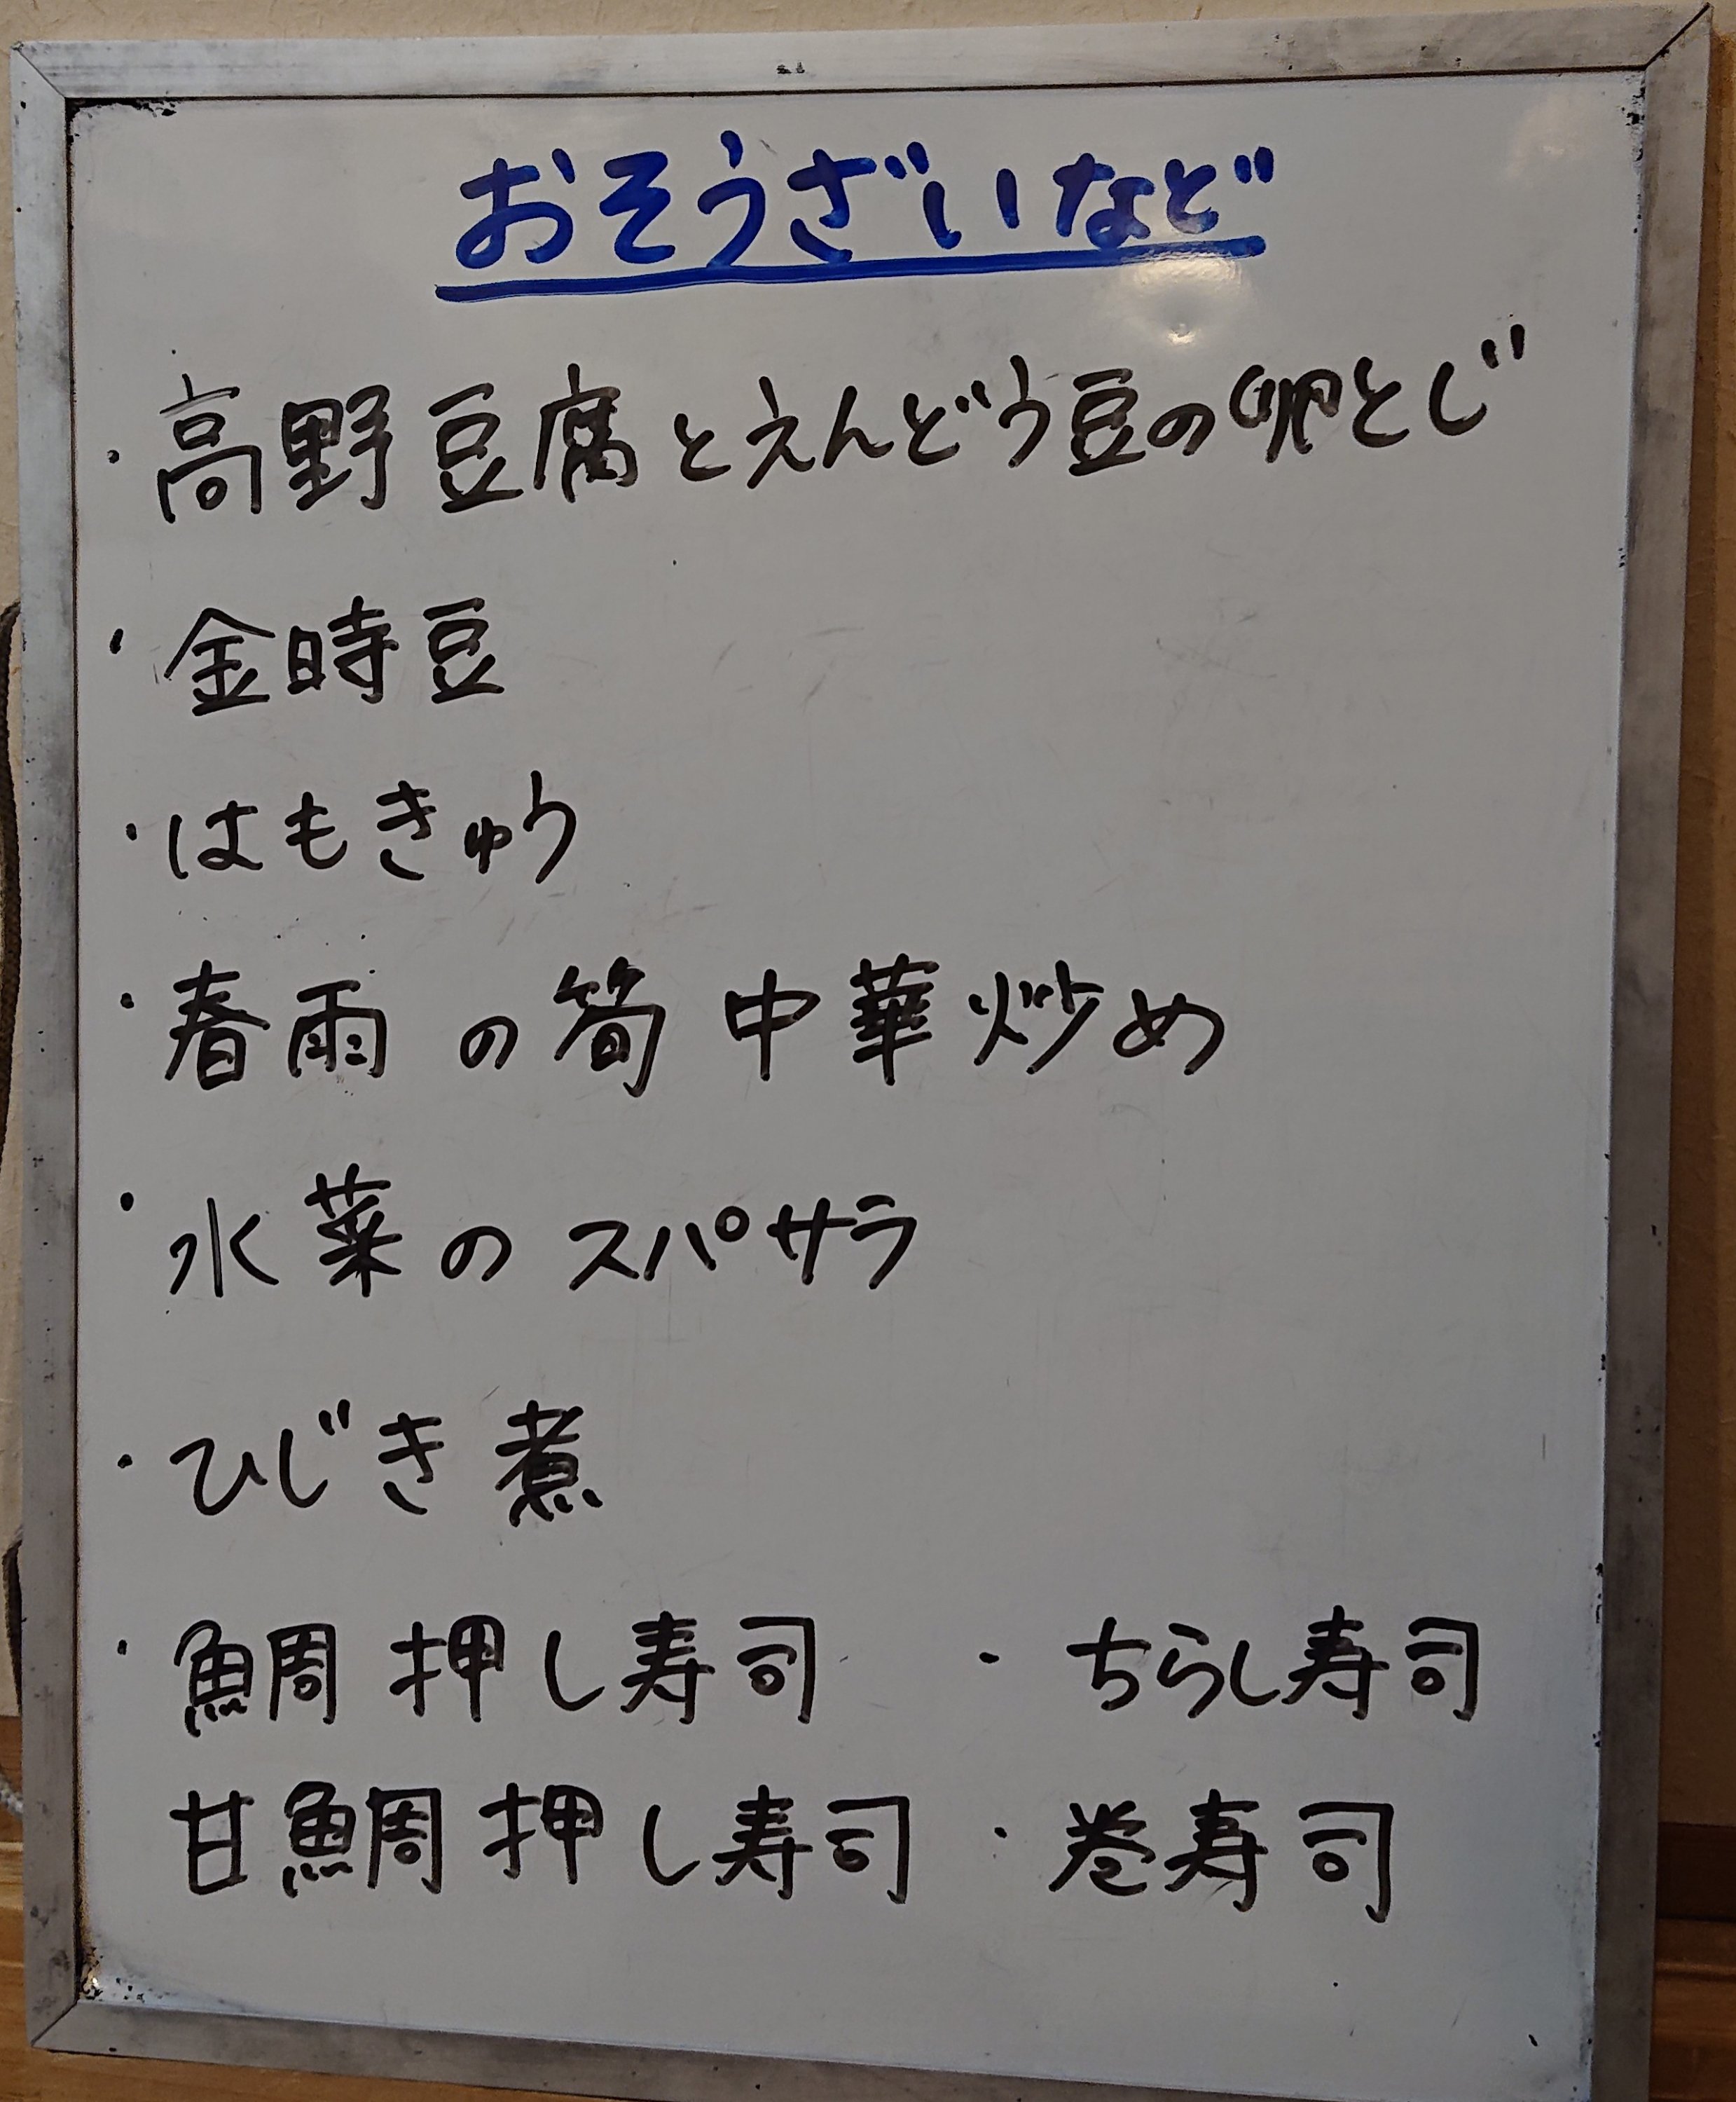 おそうざいなど
・高野豆腐とえんどう豆の卵とじ
・金時豆
・はもきゅう
・春雨の筍中華炒め
・水菜のスパサラ
・ひじき煮
・鯛押し寿司 ・ちらし寿司
甘鯛押し寿司 ・巻寿司